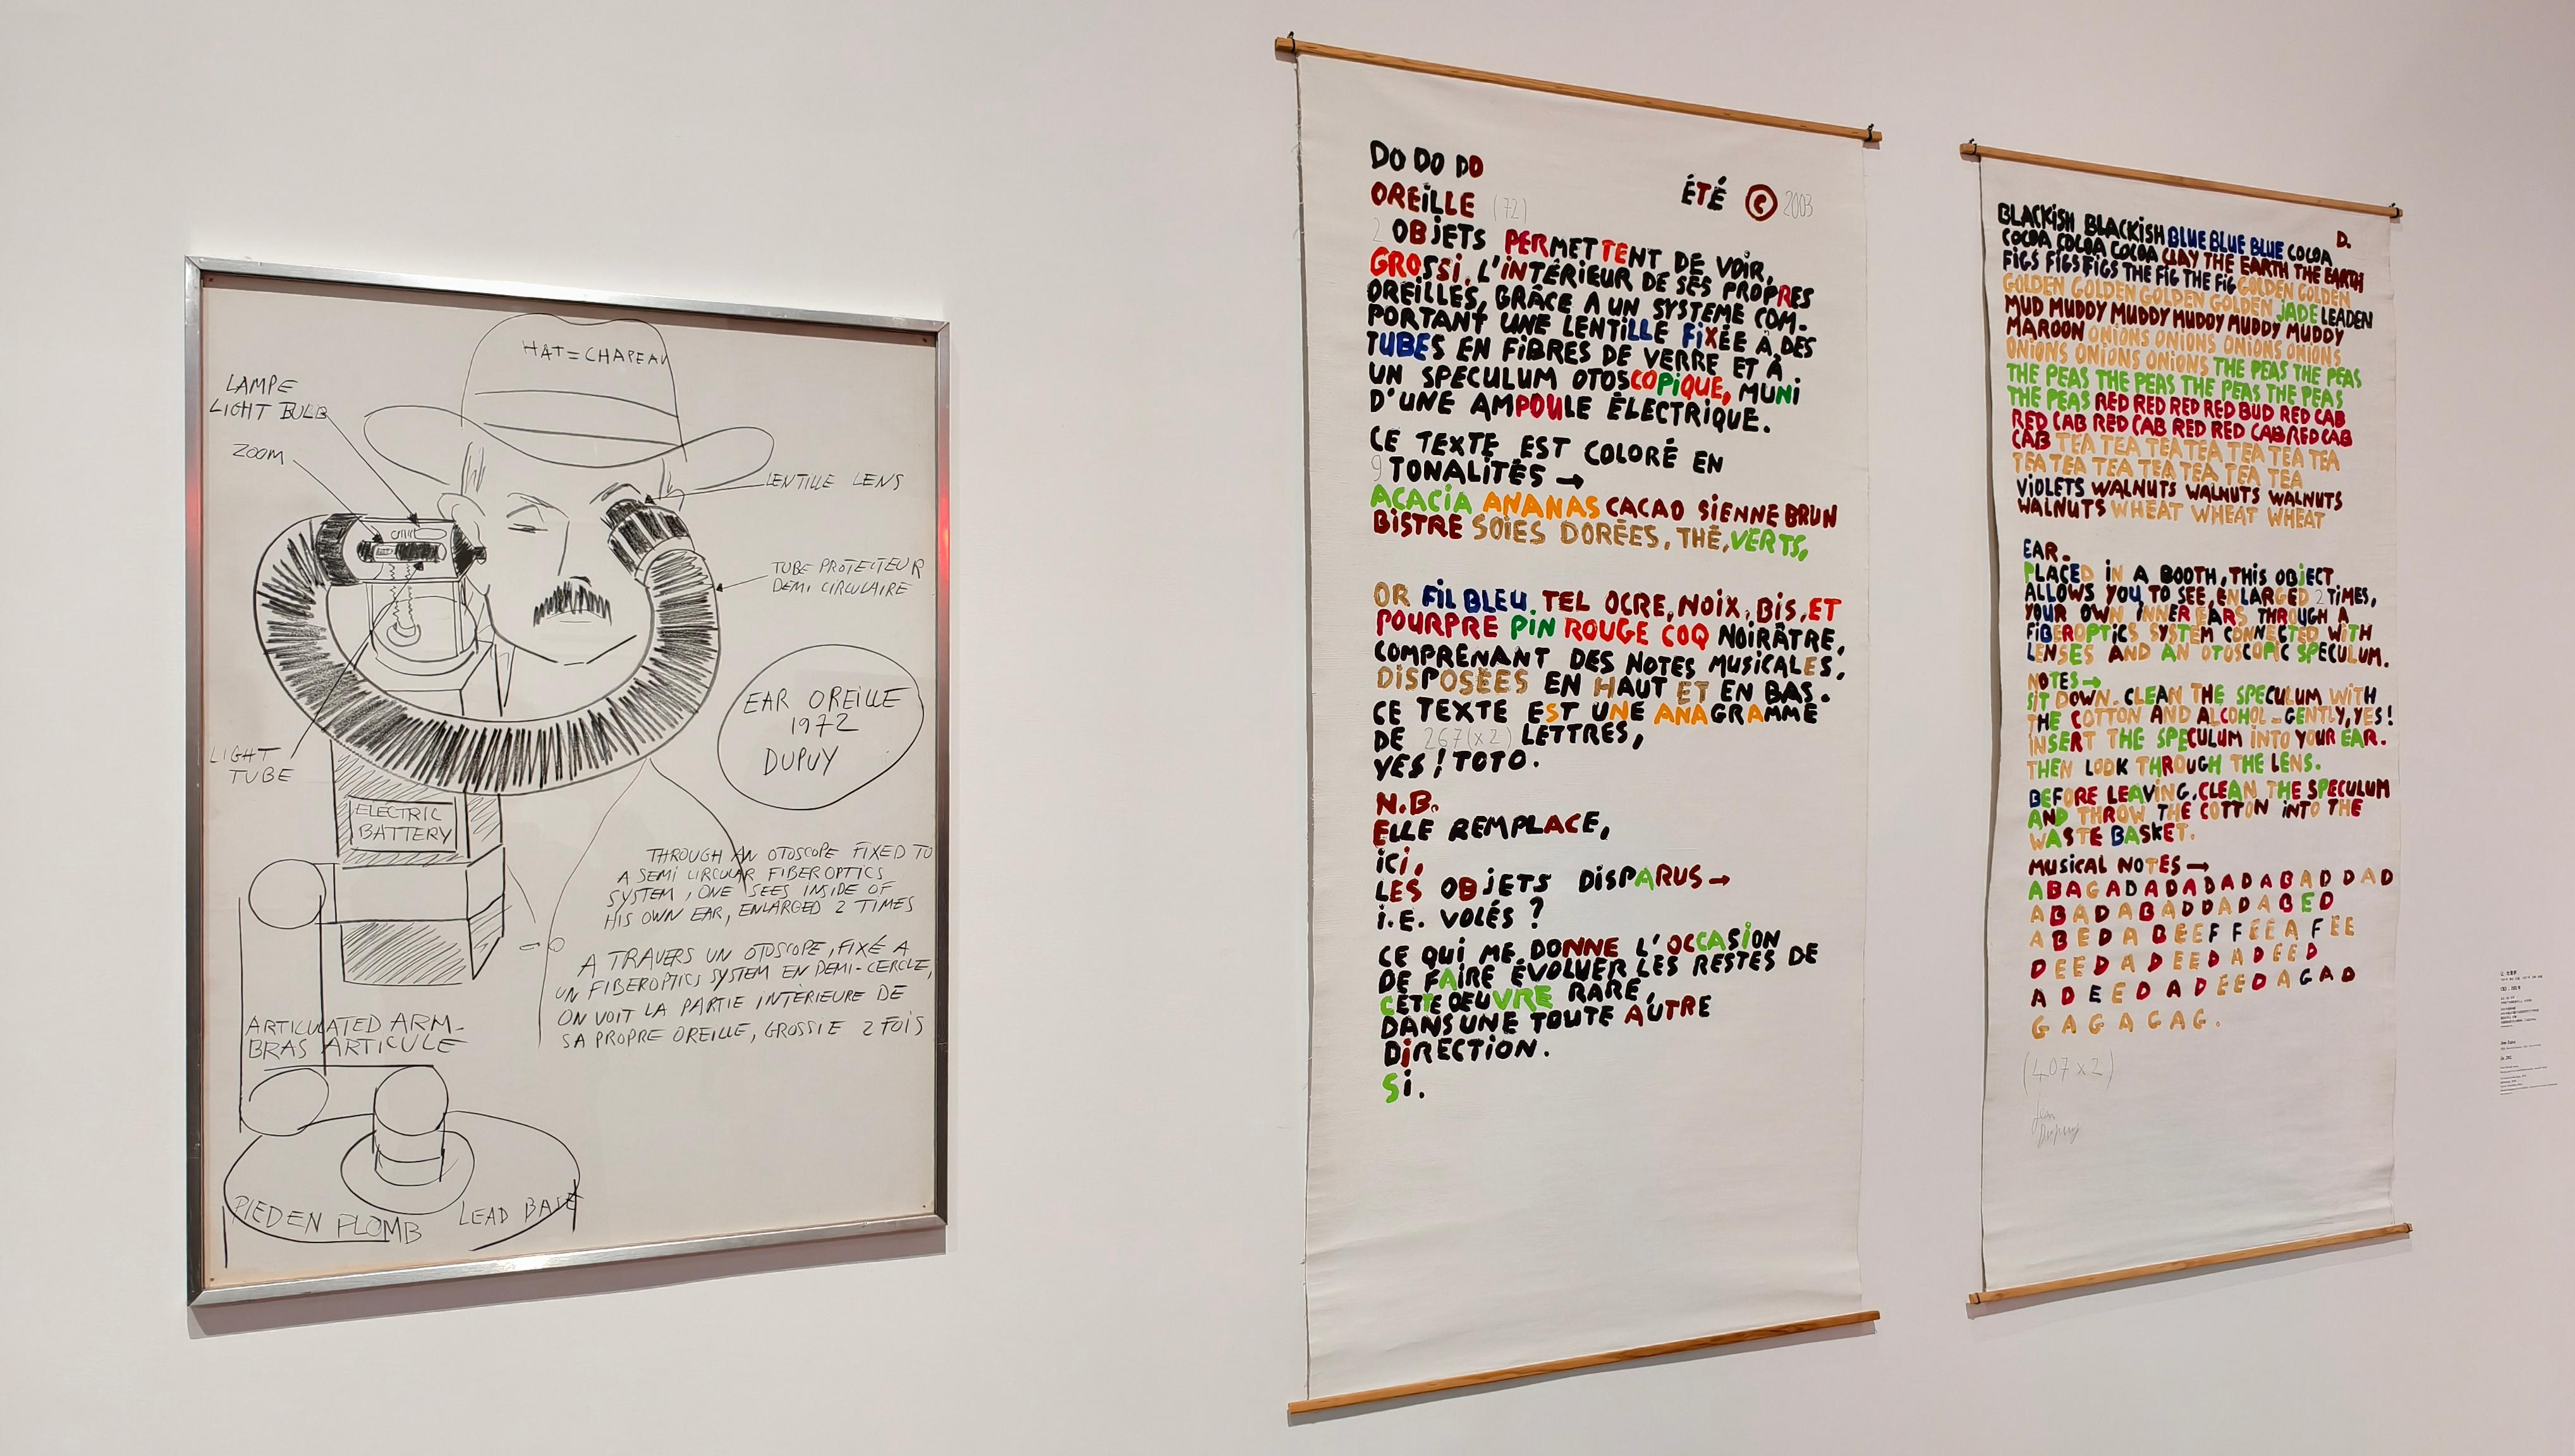 HAT = CHAPEAU
LAMPE
LIGHT BULB
ZOOM
LENTILLE LENS
TUBE PROTECTEUR
DEMI CIRCULAIRE
EAR OREILLE
1972
DUPUY
LIGHT
TUBE
ELECTRIC
BATTERY
THROUGH AN OTOSCOPE FIXED TO
A SEMI CIRCULAR FIBEROPTICS
SYSTEM, ONE SEES INSIDE OF
HIS OWN EAR, ENLARGED 2 TIMES
A TRAVERS UN OTOSCOPE, FIXÉ A
UN FIBEROPTICS SYSTEM EN DEMI-CERCLE,
ON VOIT LA PARTIE INTÉRIEURE DE
SA PROPRE OREILLE, GROSSIE 2 FOIS
ARTICULATED ARM-
BRAS ARTICULE
PIED EN PLOMB
LEAD BASE
DO DO DO
OREILLE (72)
ÉTÉ © 2003
2 OBJETS PERMETTENT DE VOIR,
GROSSI, L'INTÉRIEUR DE SES PROPRES
OREILLES, GRÂCE A UN SYSTEME COM-
PORTANT UNE LENTILLE FIXÉE À DES
TUBES EN FIBRES DE VERRE ET À
UN SPECULUM OTOSCOPIQUE, MUNI
D'UNE AMPOULE ÉLECTRIQUE.
CE TEXTE EST COLORÉ EN
9 TONALITÉS →
ACACIA ANANAS CACAO SIENNE BRUN
BISTRE SOIES DORÉES, THÉ, VERTS,
OR FIL BLEU, TEL OCRE, NOIX, BIS, ET
POURPRE PIN ROUGE COQ NOIRÂTRE,
COMPRENANT DES NOTES MUSICALES,
DISPOSÉES EN HAUT ET EN BAS.
CE TEXTE EST UNE ANAGRAMME
DE 267 (x2) LETTRES,
YES! TOTO.
N.B.
ELLE REMPLACE,
ICI,
LES OBJETS DISPARUS →
I.E. VOLÉS ?
CE QUI ME DONNE L'OCCASION
DE FAIRE ÉVOLUER LES RESTES DE
CETTE OEUVRE RARE,
DANS UNE TOUTE AUTRE
DIRECTION.
SI.
D.
BLACKISH BLACKISH BLUE BLUE BLUE COCOA
COCOA COCOA COCOA CLAY THE EARTH THE EARTH
FIGS FIGS FIGS THE FIG THE FIG GOLDEN GOLDEN
GOLDEN GOLDEN GOLDEN GOLDEN JADE LEADEN
MUD MUDDY MUDDY MUDDY MUDDY MUDDY
MAROON ONIONS ONIONS ONIONS ONIONS
ONIONS ONIONS ONIONS THE PEAS THE PEAS
THE PEAS THE PEAS THE PEAS THE PEAS
THE PEAS RED RED RED RED BUD RED CAB
RED CAB RED CAB RED RED CAB RED CAB
CAB TEA TEA TEA TEA TEA TEA TEA
TEA TEA TEA TEA TEA TEA TEA
VIOLETS WALNUTS WALNUTS WALNUTS
WALNUTS WHEAT WHEAT WHEAT
EAR.
PLACED IN A BOOTH, THIS OBJECT
ALLOWS YOU TO SEE, ENLARGED 2 TIMES,
YOUR OWN INNER EARS THROUGH A
FIBEROPTICS SYSTEM CONNECTED WITH
LENSES AND AN OTOSCOPIC SPECULUM.
NOTES →
SIT DOWN. CLEAN THE SPECULUM WITH
THE COTTON AND ALCOHOL - GENTLY, YES!
INSERT THE SPECULUM INTO YOUR EAR.
THEN LOOK THROUGH THE LENS.
BEFORE LEAVING, CLEAN THE SPECULUM
AND THROW THE COTTON INTO THE
WASTE BASKET.
MUSICAL NOTES →
A B A G A D A D A D A D A B A D D A D
A B A D A B A D D A D A B E D
A B E D A B E E F F E E A F E E
D E E D A D E E D A D E E D
A D E E D A D E E D A G A D
G A G A G A G.
(407 x 2)
Jean
Dupuy